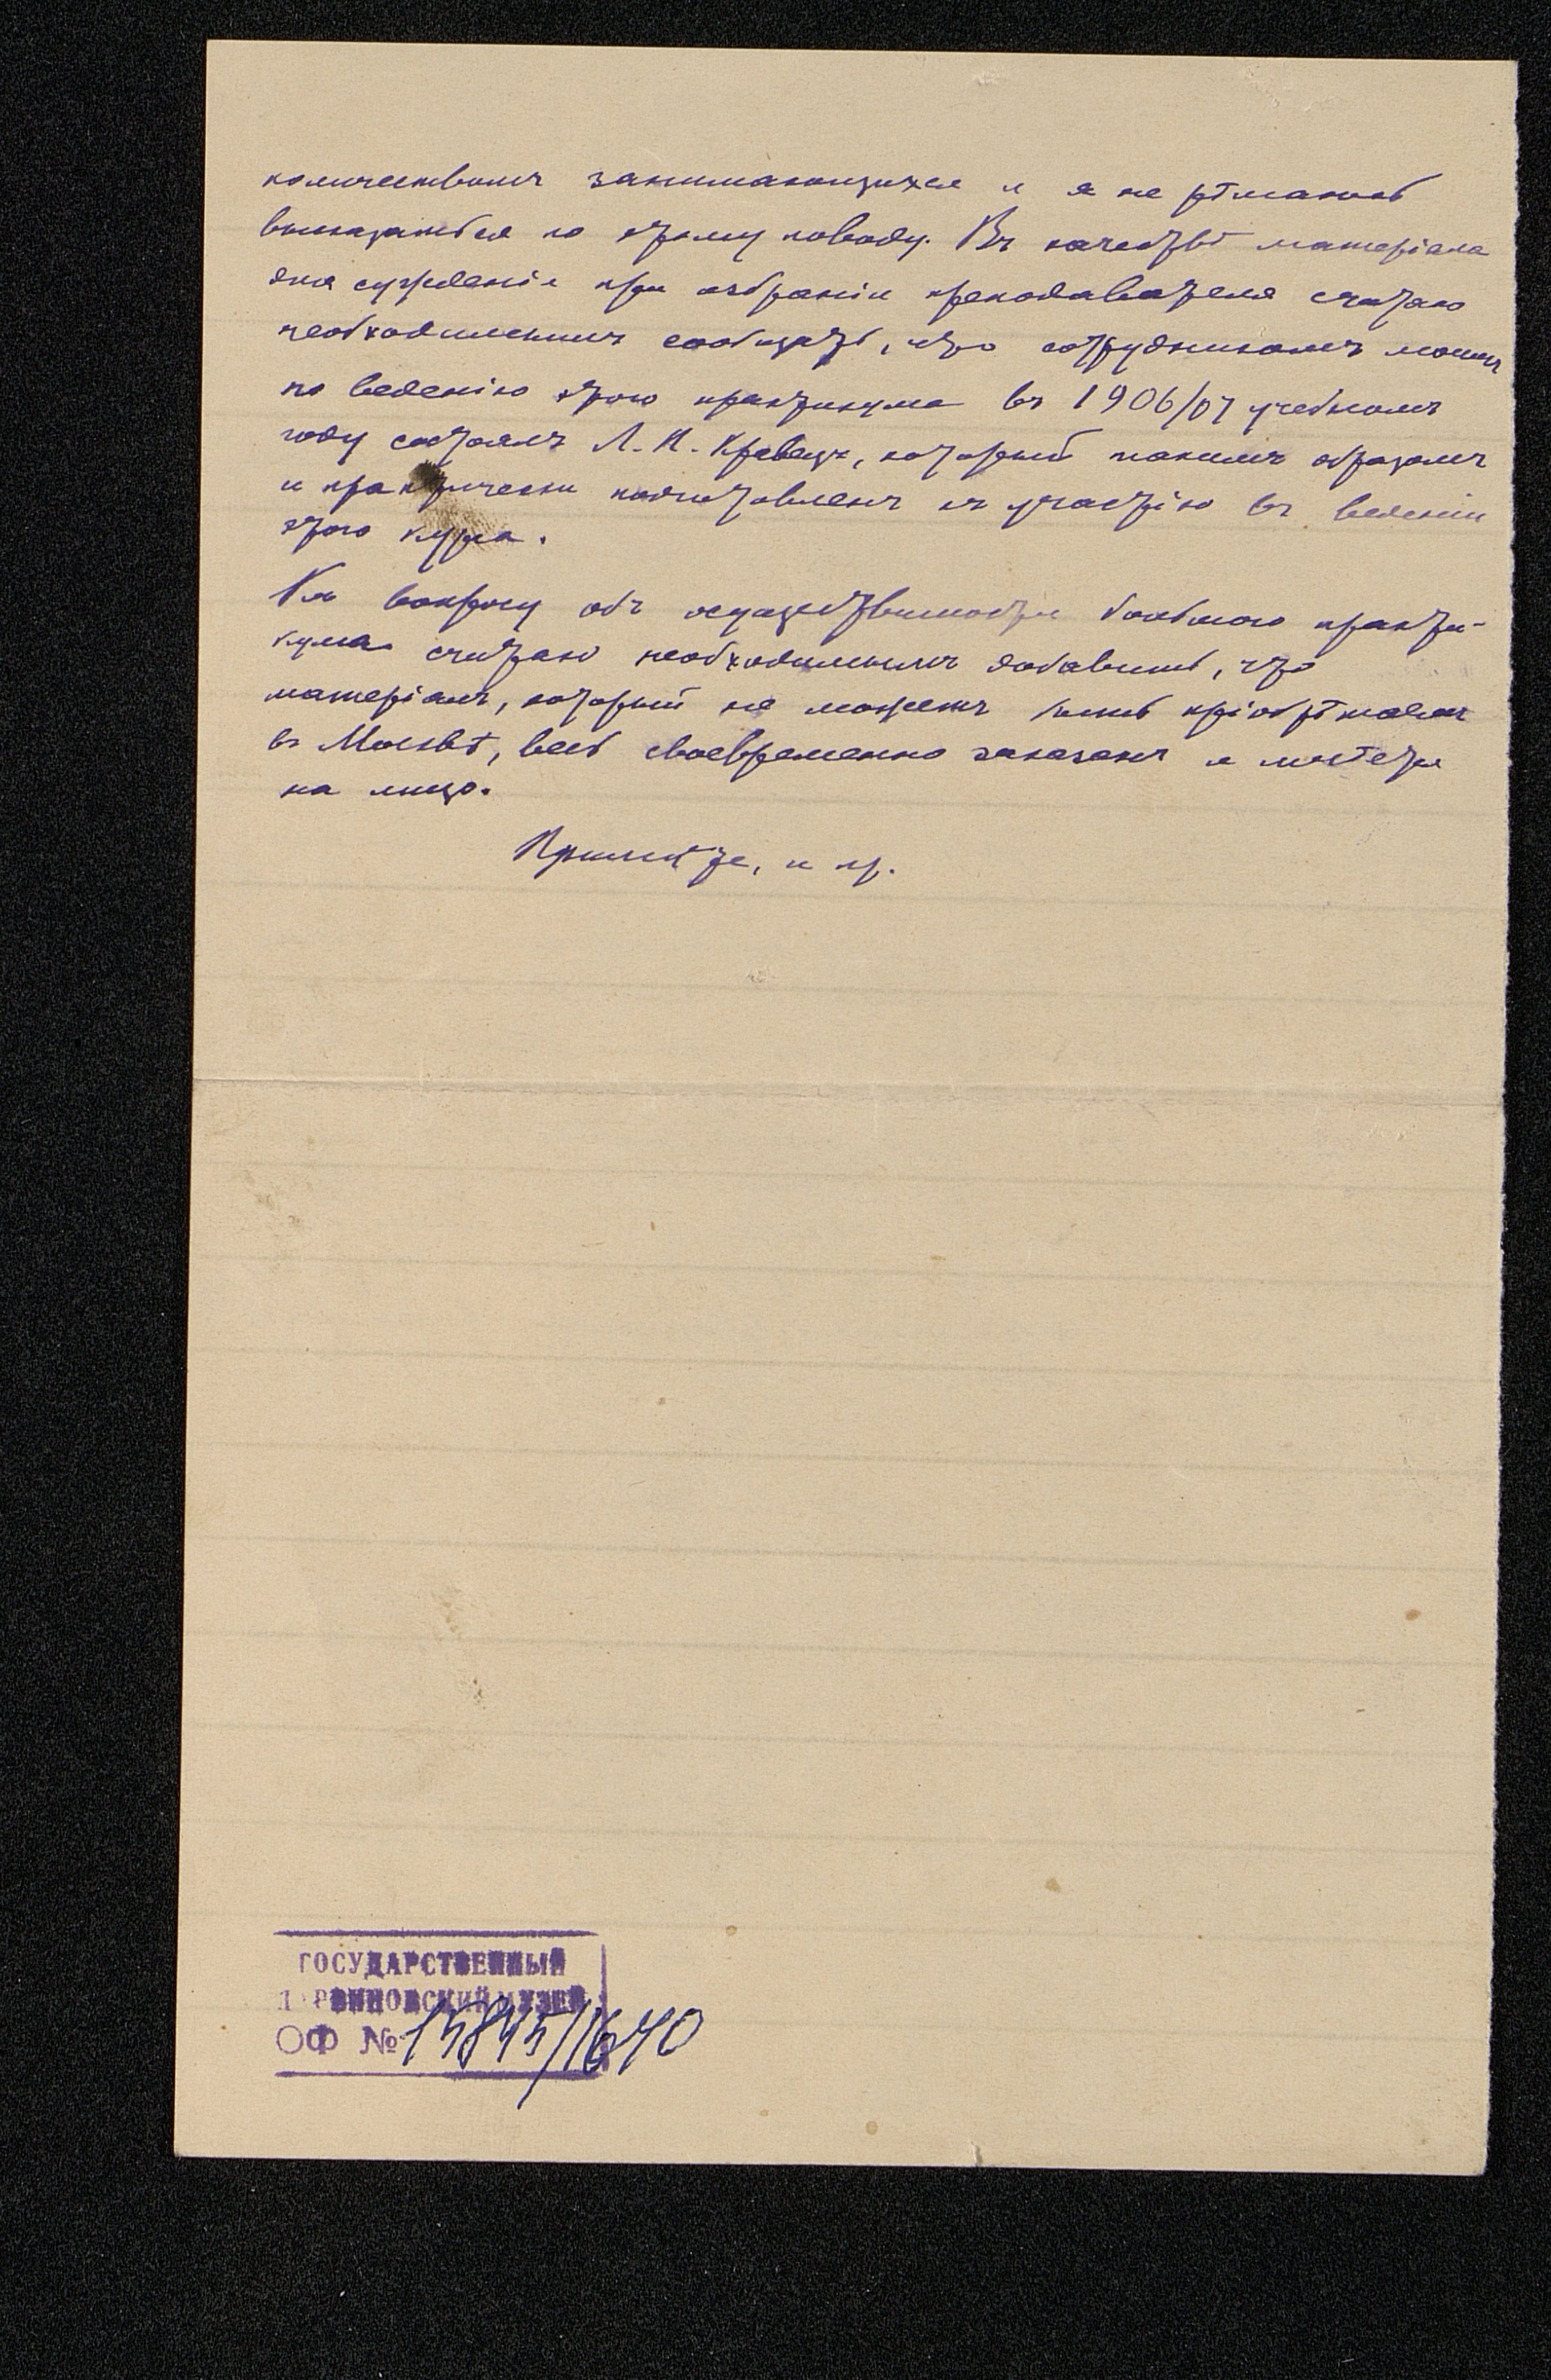 количествомъ занимающихся и я не рѣшаюсь
высказаться по этому поводу. Въ качествѣ матеріала
для сужденія при избраніи преподавателя считаю
необходимымъ сообщить, что сотрудникомъ моимъ
по веденію этого практикума въ 1906/07 учебномъ
году состоялъ Л. П. Кравецъ, который такимъ образомъ
и практически подготовленъ къ участію въ веденіи
этого курса.
Къ вопросу объ осуществимости большого практи-
кума считаю необходимымъ добавить, что
матеріалъ, который не можетъ быть пріобрѣтаемъ
въ Москвѣ, весь своевременно заказанъ и имѣется
на лицо.
Примите, и пр.
ГОСУДАРСТВЕННЫЙ
ДАРВИНОВСКИЙ МУЗЕЙ
ОФ № 15845/1640